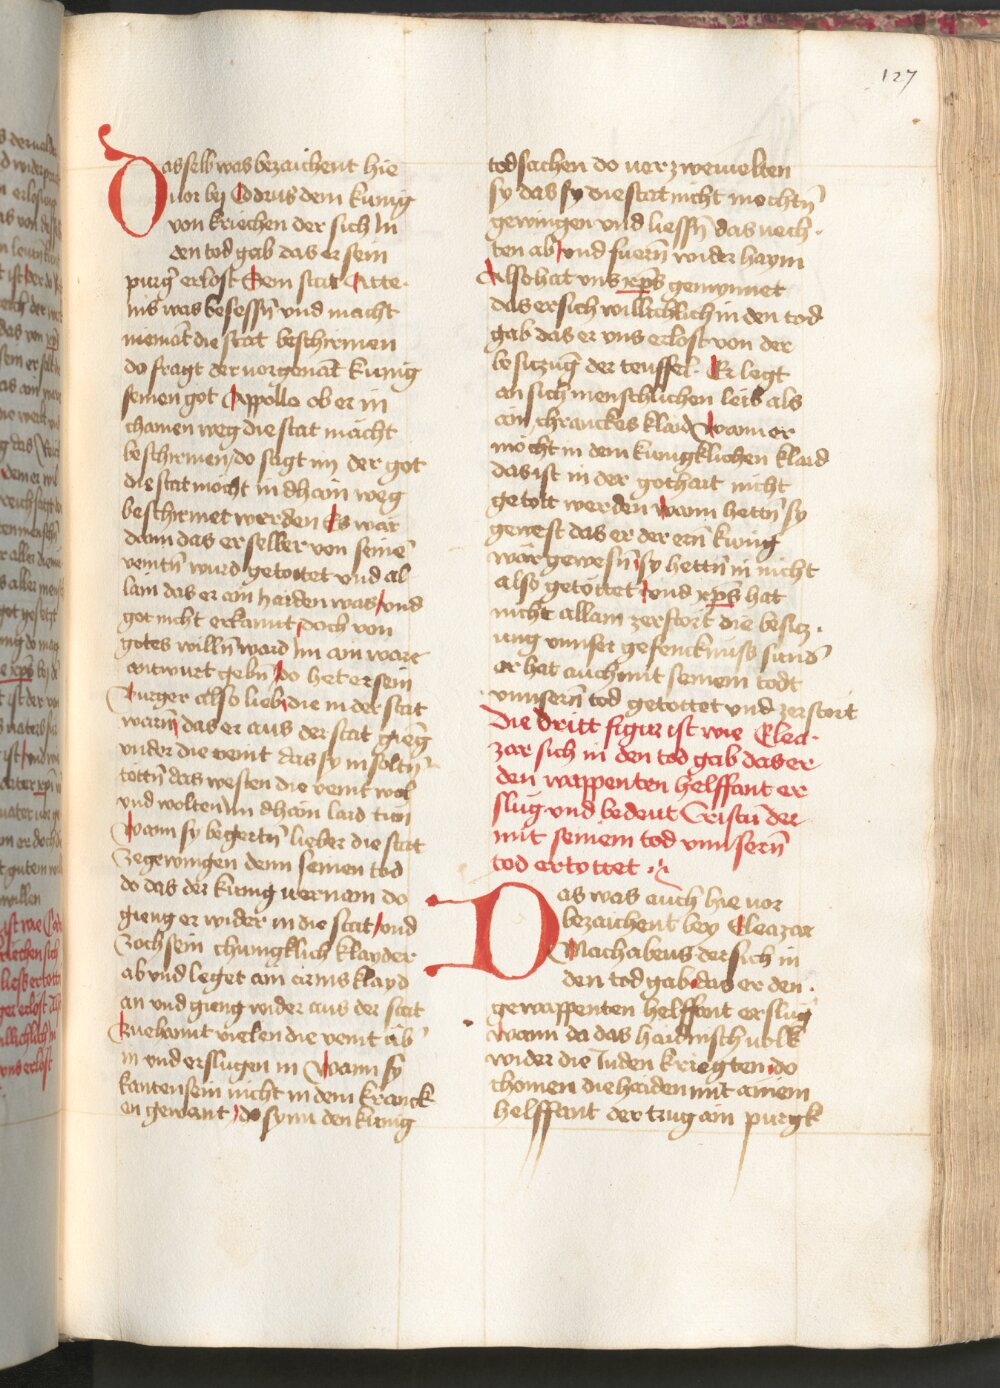 127
Das selb was bezaichent hie
vor bej Codrus dem kunig
von kriechen der sich in
den tod gab das er sein
purg̃ erlost Dem stat Atte-
nis was besessñ vnd macht
niemāt die stat beschirmen
do fragt der vorgenāt kunig
seinen got Appollo ob er in
chainen weg die stat macht
beschirmen do sagt im der got
die stat mocht in dhain weg
beschirmet werden Es war
dann das er selber von seinē
veintñ wurd getottet vnd al
lain das er ain haiden was vnd
got nicht erkannt doch von
gotes willñ ward im ain ware
antwurt gebñ do het er sein
purger also lieb die in der stat
warñ das er aus der stat gieng
vnder die veint das sy in soltñ
tottñ das westen die veint wol
vnd wolten im dhain laid tun
wann sy begertñ lieber die stat
zegewingen denn seinen tod
do das der kunig vernam do
gieng er wider in die stat vnd
zoch sein chunigklich klayder
ab vnd leget ain airnis klayd
an vnd gieng wider aus der stat
zuehannt vielen die veint ub̄
in vnd erslugen in wann sy
kanten sein nicht in dem kranck
en gewant do sy nu den kunig
tod sachen do verzweiuelten
sy das sy die stat nicht mochtñ
gewingen vnd liessñ das vech-
ten ab vnd fuerñ wider haym
Also hat vns xp̄s gemynnet
das er sich willichlich in den tod
gab das er vns erlost von der
besiczūg der teuffel. Er legt
an sich menschlichen leib als
ain chranckes klaid wann er
mocht in dem kunigklichen klaid
das ist in der gothait nicht
getott werden wann hettñ sy
gewest das er der erñ kunig
wär gewesñ sy hettñ in nicht
also getottet vnd xp̄s hat
nicht allain zerstort die besicz-
ung vnnser gefencknuss sunđ
er hat auch mit seinem todt
vnnserñ tod getottet vnd zerstort
Die dritt figur ist wie Elea-
zar sich in den tod gab das er
den wappenten helffant er
slug vnd bedeut Cristū der
mit seinem tod vnnserñ
tod ertottet
Das was auch hie vor
bezaichent bey Eleazar
Machabeus der sich in
den tod gab das er den
gewappenten helffant erslug
wann da das haidnisch volk
wider die Juden kriegten do
chomen die haiden mit ainem
helffant der trug ain purgk